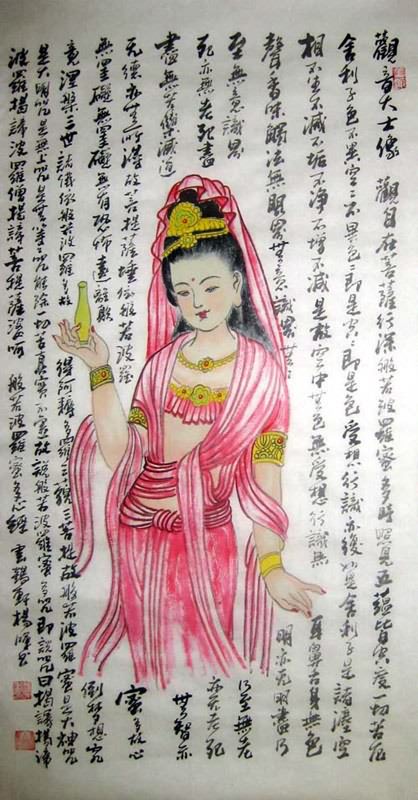 觀音大士像 觀自在菩薩行深般若波羅蜜多時照見五蘊皆空度一切苦厄
舍利子色不異空空不異色色即是空空即是色受想行識亦復如是舍利子是諸法空
相不生不滅不垢不净不增不减是故空中無色無受想行識無 耳鼻舌身無色
聲香味觸法無眼界無意識界 明亦无明盡乃
至無意識界 乃至無老
死亦無老死盡 亦无老死
盡無苦集滅道 無智亦
无德故無所得故菩提薩埵依般若波羅 蜜多故心
無罣礙無罣礙無有恐怖遠離顛 倒夢想究
竟涅槃三世諸佛依般若波羅多故 得阿耨多羅三藐三菩提故般若波羅蜜是大神咒
是大明咒是無上咒是無等等咒能除一切苦真實不虛故說般若波羅蜜多咒即說咒曰揭諦揭諦
波羅揭諦波羅僧揭諦菩提薩婆呵 般若波羅蜜多心經